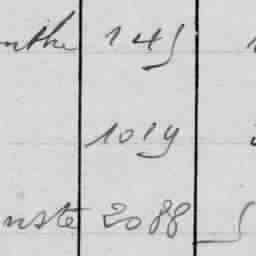 nthe 145
1019
nste 2088